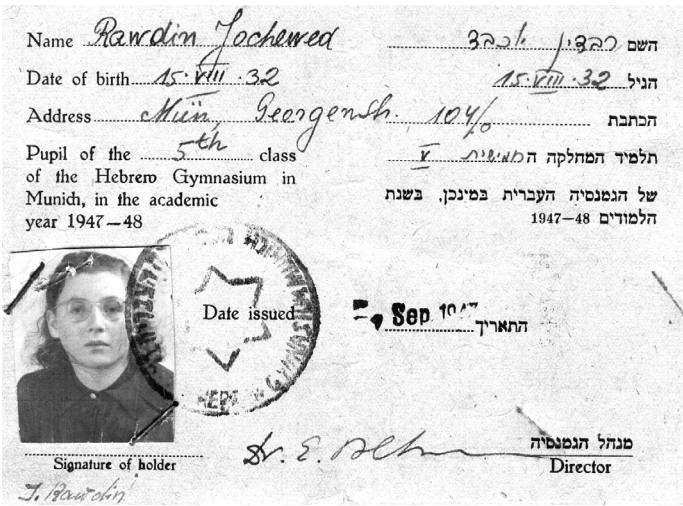 Name Rawdin Jochewed השם רבדין יוכבד
Date of birth 15.VIII.32 הגיל 15.VIII.32
Address Mün, Georgenstr. 104/0 הכתבת
Pupil of the 5th class תלמיד המחלקה החמישית V
of the Hebrew Gymnasium in
Munich, in the academic
year 1947—48
של הגמנסיה העברית במינכן, בשנת
הלמודים 1947—48
Date issued Sep 1947 התאריך
Dr. E.
מנהל הגמנסיה
Director
Signature of holder
J. Rawdin